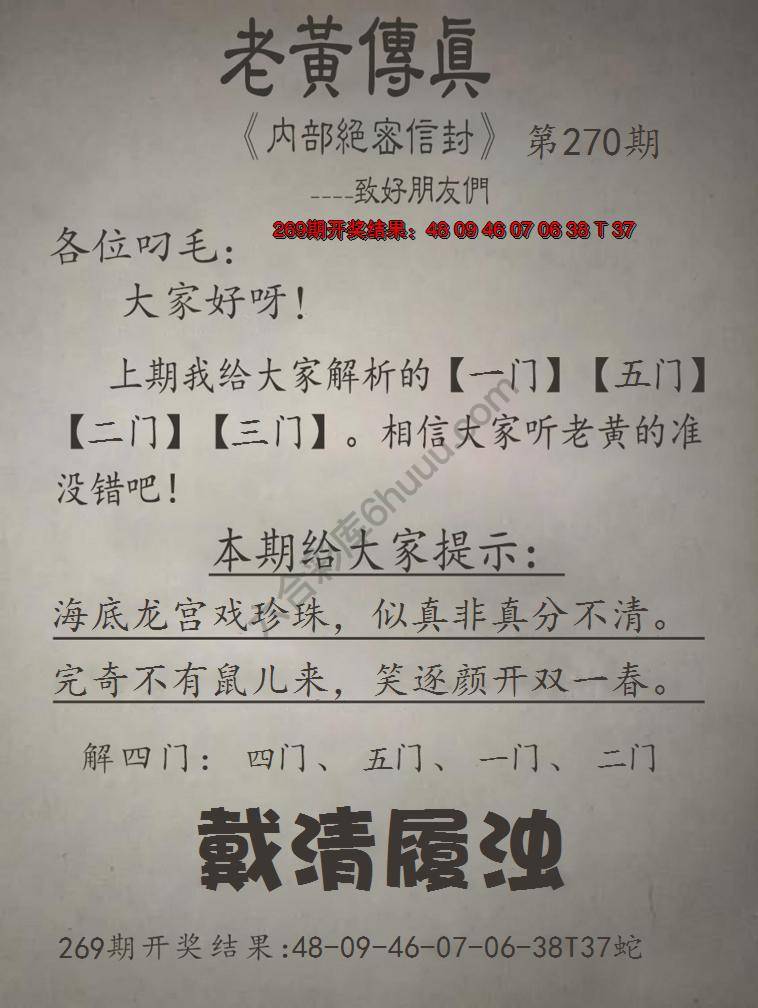 老黃傳眞
《内部絕密信封》 第270期
----致好朋友們
269期开奖结果：48 09 46 07 06 38 T 37
各位叼毛：
大家好呀！
上期我给大家解析的【一门】【五门】
【二门】【三门】。相信大家听老黄的准
没错吧！
本期给大家提示：
海底龙宫戏珍珠，似真非真分不清。
完奇不有鼠儿来，笑逐颜开双一春。
解四门： 四门、 五门、 一门、 二门
戴清履浊
269期开奖结果:48-09-46-07-06-38T37蛇
六合彩库6huuu.com